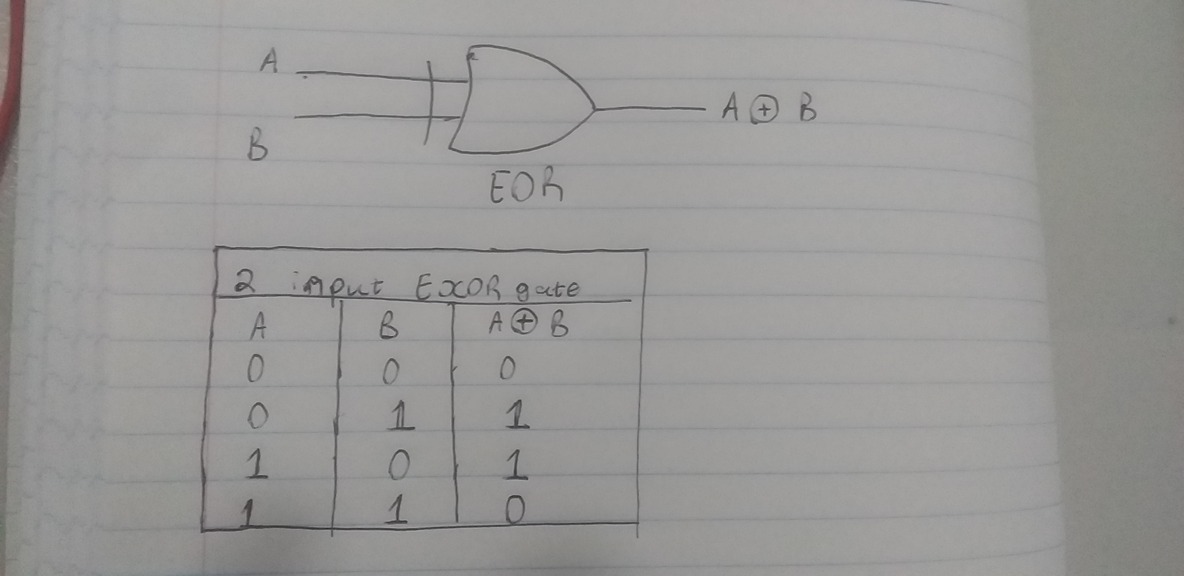 A
A ⊕ B
B
EOR
2 input EXOR gate
A B A ⊕ B
0 0 0
0 1 1
1 0 1
1 1 0